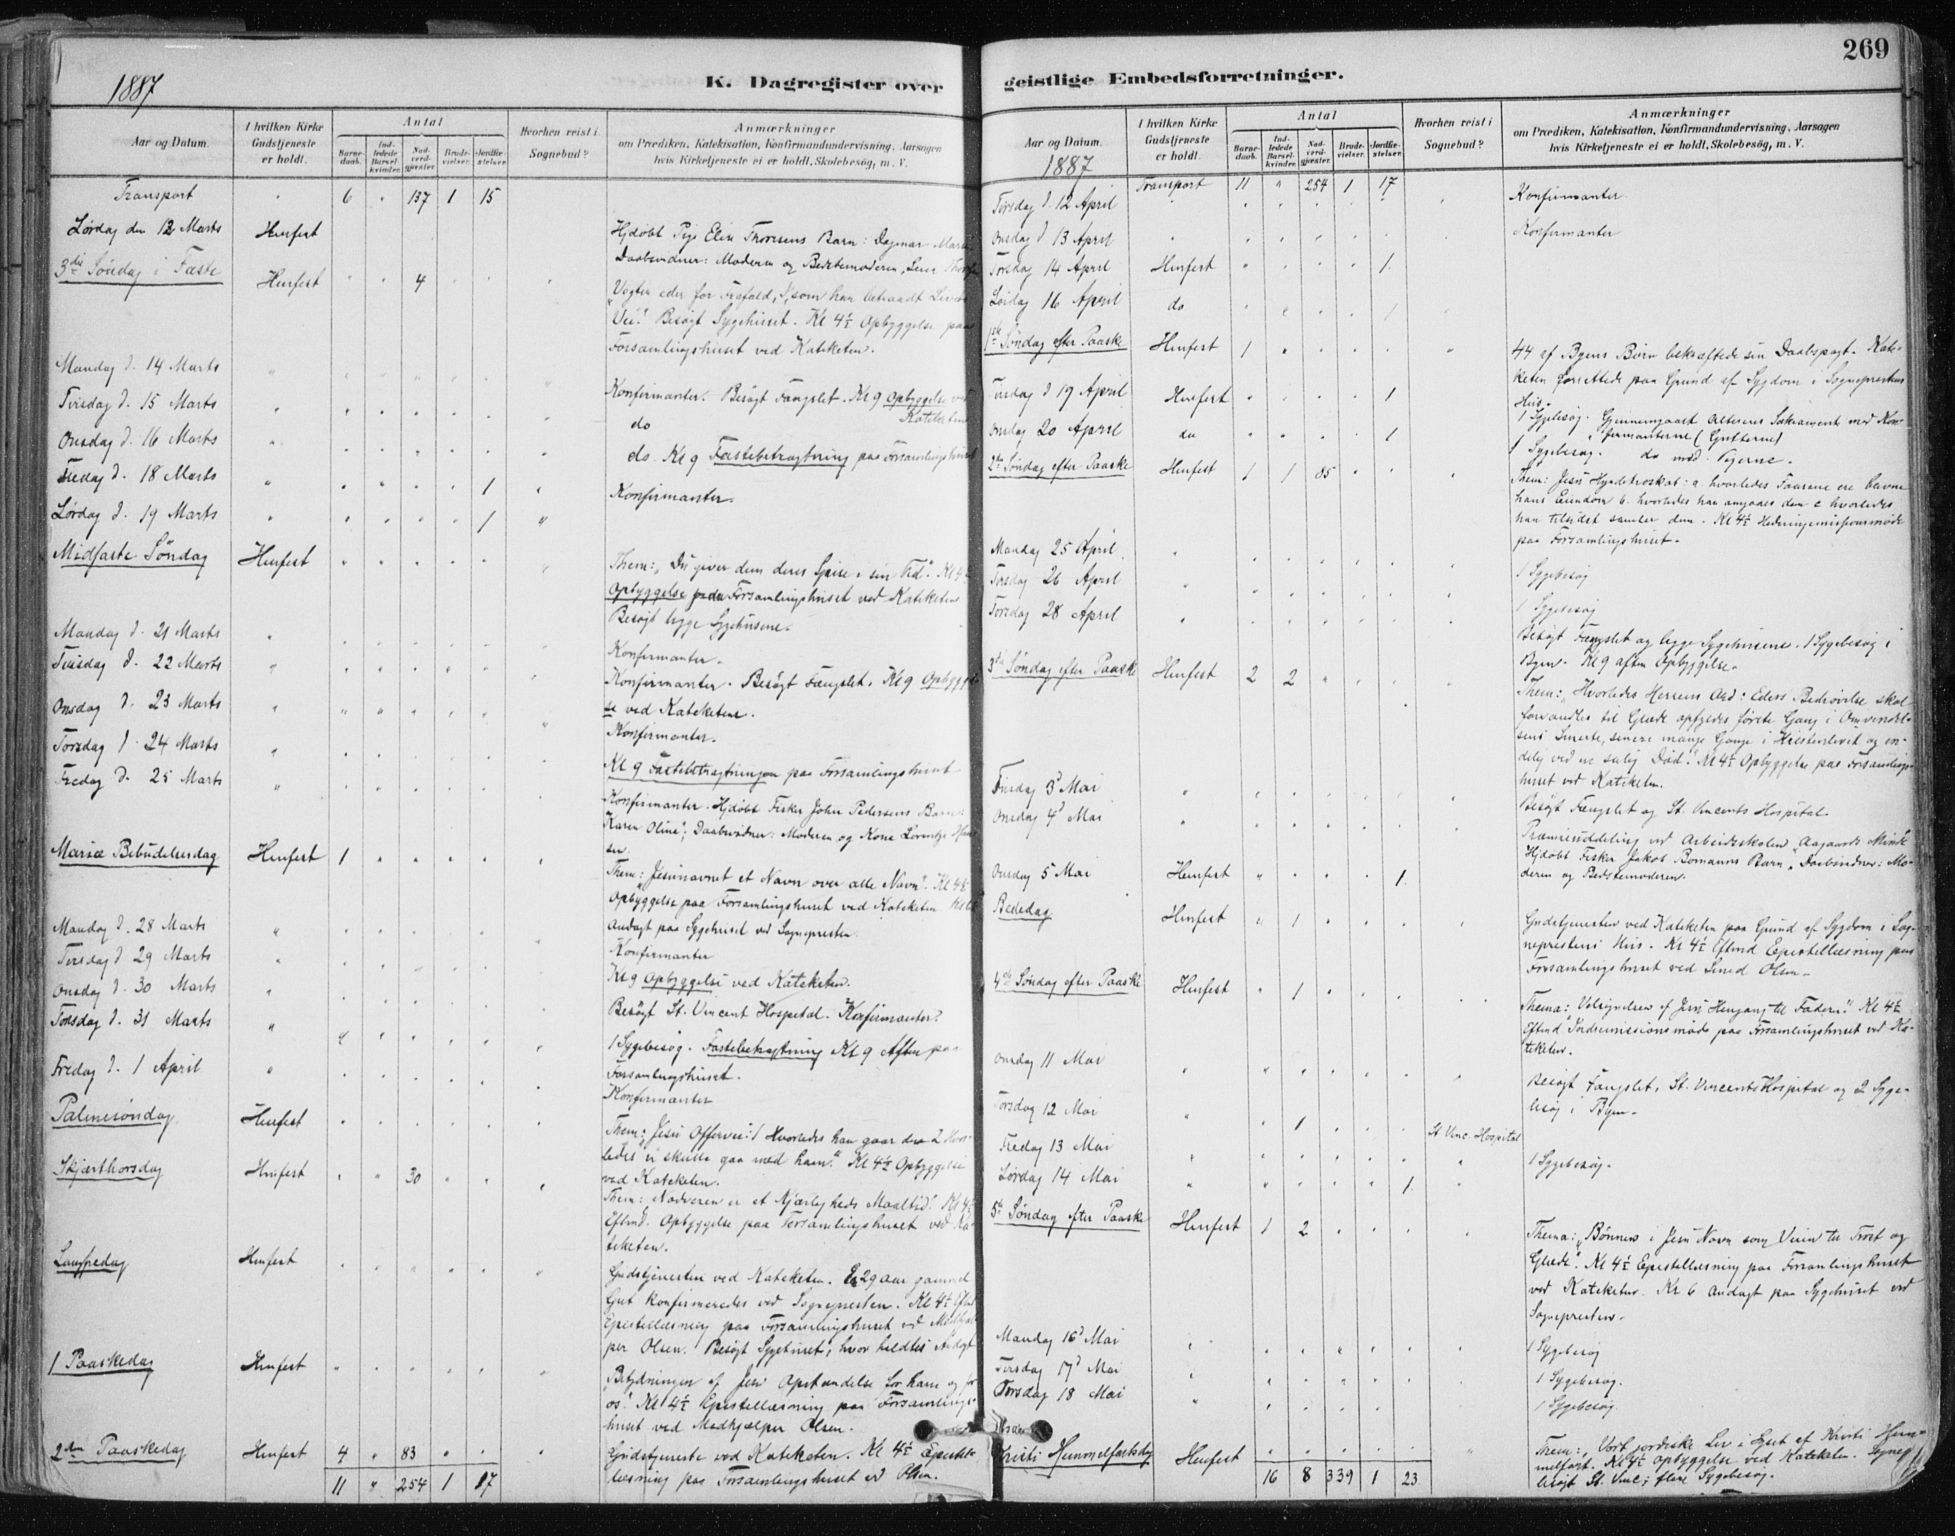 1887
K. Dagregister over
Aar og Datum.
I hvilken Kirke Gudstjeneste er holdt.
Antal
Barnedaab.
Indledede Barselkvinder.
Nadverdgjæster.
Brudevielser.
Jordfæstelser.
Hvorhen reist i Sognebud?
Anmærkninger
om Prædiken, Katekisation, Konfirmandundervisning, Aarsagen
hvis Kirketjeneste ei er holdt, Skolebesøg, m. V.
Transport 6 " 137 1 15
Lørdag den 12 Marts
Hjdøbt Pige Elise Thoresens Barn: Dagmar
Daabvidner: Moderen og Bedstemoderen
3die Søndag i Faste 4
Vogter eder for Frafald, I, som har betraadt Livets
Vei". Besøgt Sygehuset. Kl 4½ Opbyggelse paa
Forsamlingshuset ved Kateketen.
Mandag d. 14 Marts
Konfirmanter. Besøgt Fængslet. Kl 9 Opbyggelse ved
Kateketen
Tirsdag d. 15 Marts
do
Onsdag d. 16 Marts
do. Kl 9 Fastebetragtning paa Forsamlingshuset
Fredag d. 18 Marts 1
Konfirmanter.
Lørdag d. 19 Marts 1
Midfaste Søndag
Them: "Du giver dem deres Spise i sin Tid". Kl 4½
Opbyggelse paa Forsamlingshuset ved Kateketen
Besøgt begge Sygehusene.
Mandag d. 21 Marts
Konfirmanter.
Tirsdag d. 22 Marts
Konfirmanter. Besøgt Fængslet. Kl 9 Opbyggel
se ved Kateketen.
Onsdag d. 23 Marts
Konfirmanter.
Torsdag d. 24 Marts
Kl 9 Fastebetragtningen paa Forsamlingshuset
Fredag d. 25 Marts
Konfirmanter. Hjdøbt Fisker John Pedersens Barn:
Karen Oline"; Daabvidner: Moderen og Kone
Mariæ Bebudelsesdag 1
Them: Jesunavnet et Navn over alle Navn". Kl 4½
Opbyggelse paa Forsamlingshuset ved Kateketen
Andagt paa Sygehuset ved Sognepresten.
Mandag d. 28 Marts
Konfirmanter
Tirsdag d. 29 Marts
Kl 9 Opbyggelse ved Kateketen.
Onsdag d. 30 Marts
Besøgt St. Vincent Hospital. Konfirmanter.
Torsdag d. 31 Marts
1 Sygebesøg. Fastebetragtning Kl 9 Aften paa
Forsamlingshuset.
Fredag d. 1 April
Konfirmanter
Palmesøndag
Them: Jesu Offervei: 1 Hvorledes han gaar den 2 Hvor
ledes vi skulle gaa med ham." Kl 4½ Opbyggelse
ved Kateketen.
Skjærthorsdag 30
Them: Nadveren er et Kjærligheds Maaltid". Kl 4½
Eftmd. Opbyggelse paa Forsamlingshuset ved Ka-
teketen.
Langfredag
Gudstjenesten ved Kateketen. En 29 aar gammel
Gut konfirmeredes ved Sognepresten. Kl 4½ Eftmd
Epistellæsning paa Forsamlingshuset ved Medhjæl
per Olsen. Besøgt Sygehuset, hvor holdtes Andagt
1 Paaskedag
"Betydningen af Jesu Opstandelse for ham og for
os". Kl 4½ Epistellæsning paa Forsamlings-
huset ved Medhjælper Olsen.
2den Paaskedag 4 " 83
Gudstjeneste ved Kateketen. Kl 4½ Epistel-
læsning paa Forsamlingshuset ved Olsen.
11 " 254 1 17
269
geistlige Embedsforretninger.
Aar og Datum.
1887
I hvilken Kirke Gudstjeneste er holdt.
Antal
Barnedaab.
Indledede Barselkvinder.
Nadverdgjæster.
Brudevielser.
Jordfæstelser.
Hvorhen reist i Sognebud?
Anmærkninger
om Prædiken, Katekisation, Konfirmandundervisning, Aarsagen
hvis Kirketjeneste ei er holdt, Skolebesøg, m. V.
Transport 11 " 254 1 17
d 12 April
Konfirmanter
Onsdag d 13 April
Konfirmanter
Torsdag 14 April 1
Lørdag 16 April do 1
1ste Søndag efter Paaske 1
44 af Byens Børn bekræftede sin Daabspagt. Kate-
keten forrettede paa Grund af Sygdom i Sogneprestens
Hus.
Tirsdag d 19 April 1
1 Sygebesøg. Gjennemgaaet Alterens Sakramente med Kon-
firmanterne (Gutterne)
Onsdag 20 April do 1
1 Sygebesøg. do med Pigerne.
2den Søndag efter Paaske 1 1 85
Them: Jesu Hyrdetroskab: a. hvorledes Faarene ere bleven
hans Eiendom b. hvorledes han dem c hvorledes
han tilsidst samler dem. Kl 4½ Hedningemissionsmøde
paa Forsamlingshuset.
Mandag 25 April
1 Sygebesøg
26 April
1 Sygebesøg
Torsdag 28 April
Besøgt Fængslet og begge Sygehusene. 1 Sygebesøg i
Byen. Kl 9 aften Opbyggelse.
3die Søndag efter Paaske 2 2
Them: "Hvorledes Herrens Ord: Eders Bedrøvelse skal
forvandles til Glæde opfyldes første Gang i Omvendel-
sens Smerte, senere mange Gange i Kristenlivet og en-
delig ved en salig Død". Kl 4½ Opbyggelse paa Forsamlings-
huset ved Kateketen.
Tirsdag 3d Mai
Besøgt Fængslet og St. Vincents Hospital.
Onsdag 4d Mai
Præmieuddeling ved Arbeidsskolen "Aagaards Minde"
Hjdøbt Fisker Jakob Bomanns Barn. Daabvidner: Mo-
deren og Bedstemoderen.
Onsdag 5 Mai 1
Bededag 1
Gudstjenesten ved Kateketen paa Grund af Sygdom i Sog-
neprestens Hus. Kl 4½ Eftmd Epistellæsning paa
Forsamlingshuset ved Olsen.
4de Søndag efter Paaske 1
Thema: Velsignelsen af Jesu Hengang til Faderen". Kl 4½
Eftmd Indremissionsmøde paa Forsamlingshuset ved Ka-
teketen.
Onsdag 11 Mai
Besøgt Fængslet, St. Vincents Hospital og 2 Syge-
besøg i Byen.
Torsdag 12 Mai 1 St Vinc. Hospital
Fredag 13 Mai
1 Sygebesøg.
Lørdag 14 Mai 1
5te Søndag efter Paaske 1 2
Thema: "Bønnen i Jesu Navn som Veien til Trøst og
Glæde". Kl 4½ Epistellæsning paa Forsamlingshuset
ved Kateketen. Kl 6 Andagt paa Sygehuset ved
Sognepresten.
Mandag 16d Mai
1 Sygebesøg
Tirsdag 17d Mai
1 Sygebesøg.
18 Mai
1 Sygebesøg
Kristi Himmelfartsdag
Them: "Vort jordiske Liv i Lyset af Kristi Him-
melfart. Kl 4½ Opbyggelse ved Kateketen.
besøgt St. Vinc; flere Sygebesøg.
16 8 339 1 23